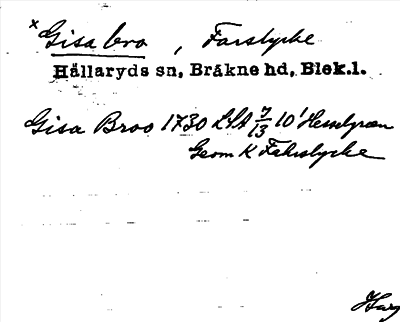 x Gisabro, Farslycke
Hällaryds sn, Bräkne hd, Blek.l.
Gisa Broo 1730 LSA 7/13 10' Hesselgren
Geom K Fahrslycke